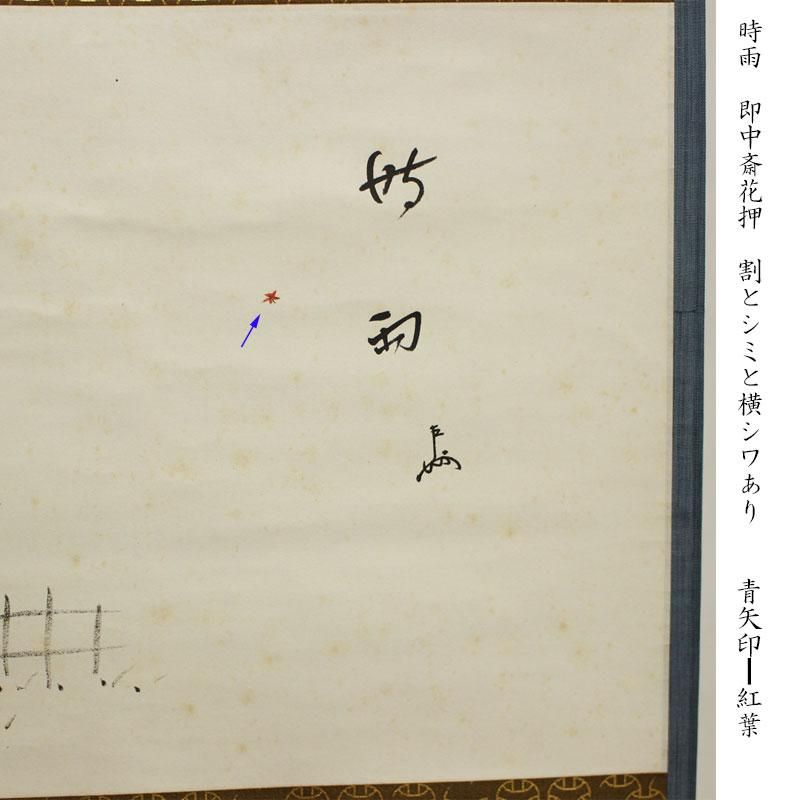 時雨　即中斎花押　割とシミと横シワあり　青矢印ー紅葉
時雨